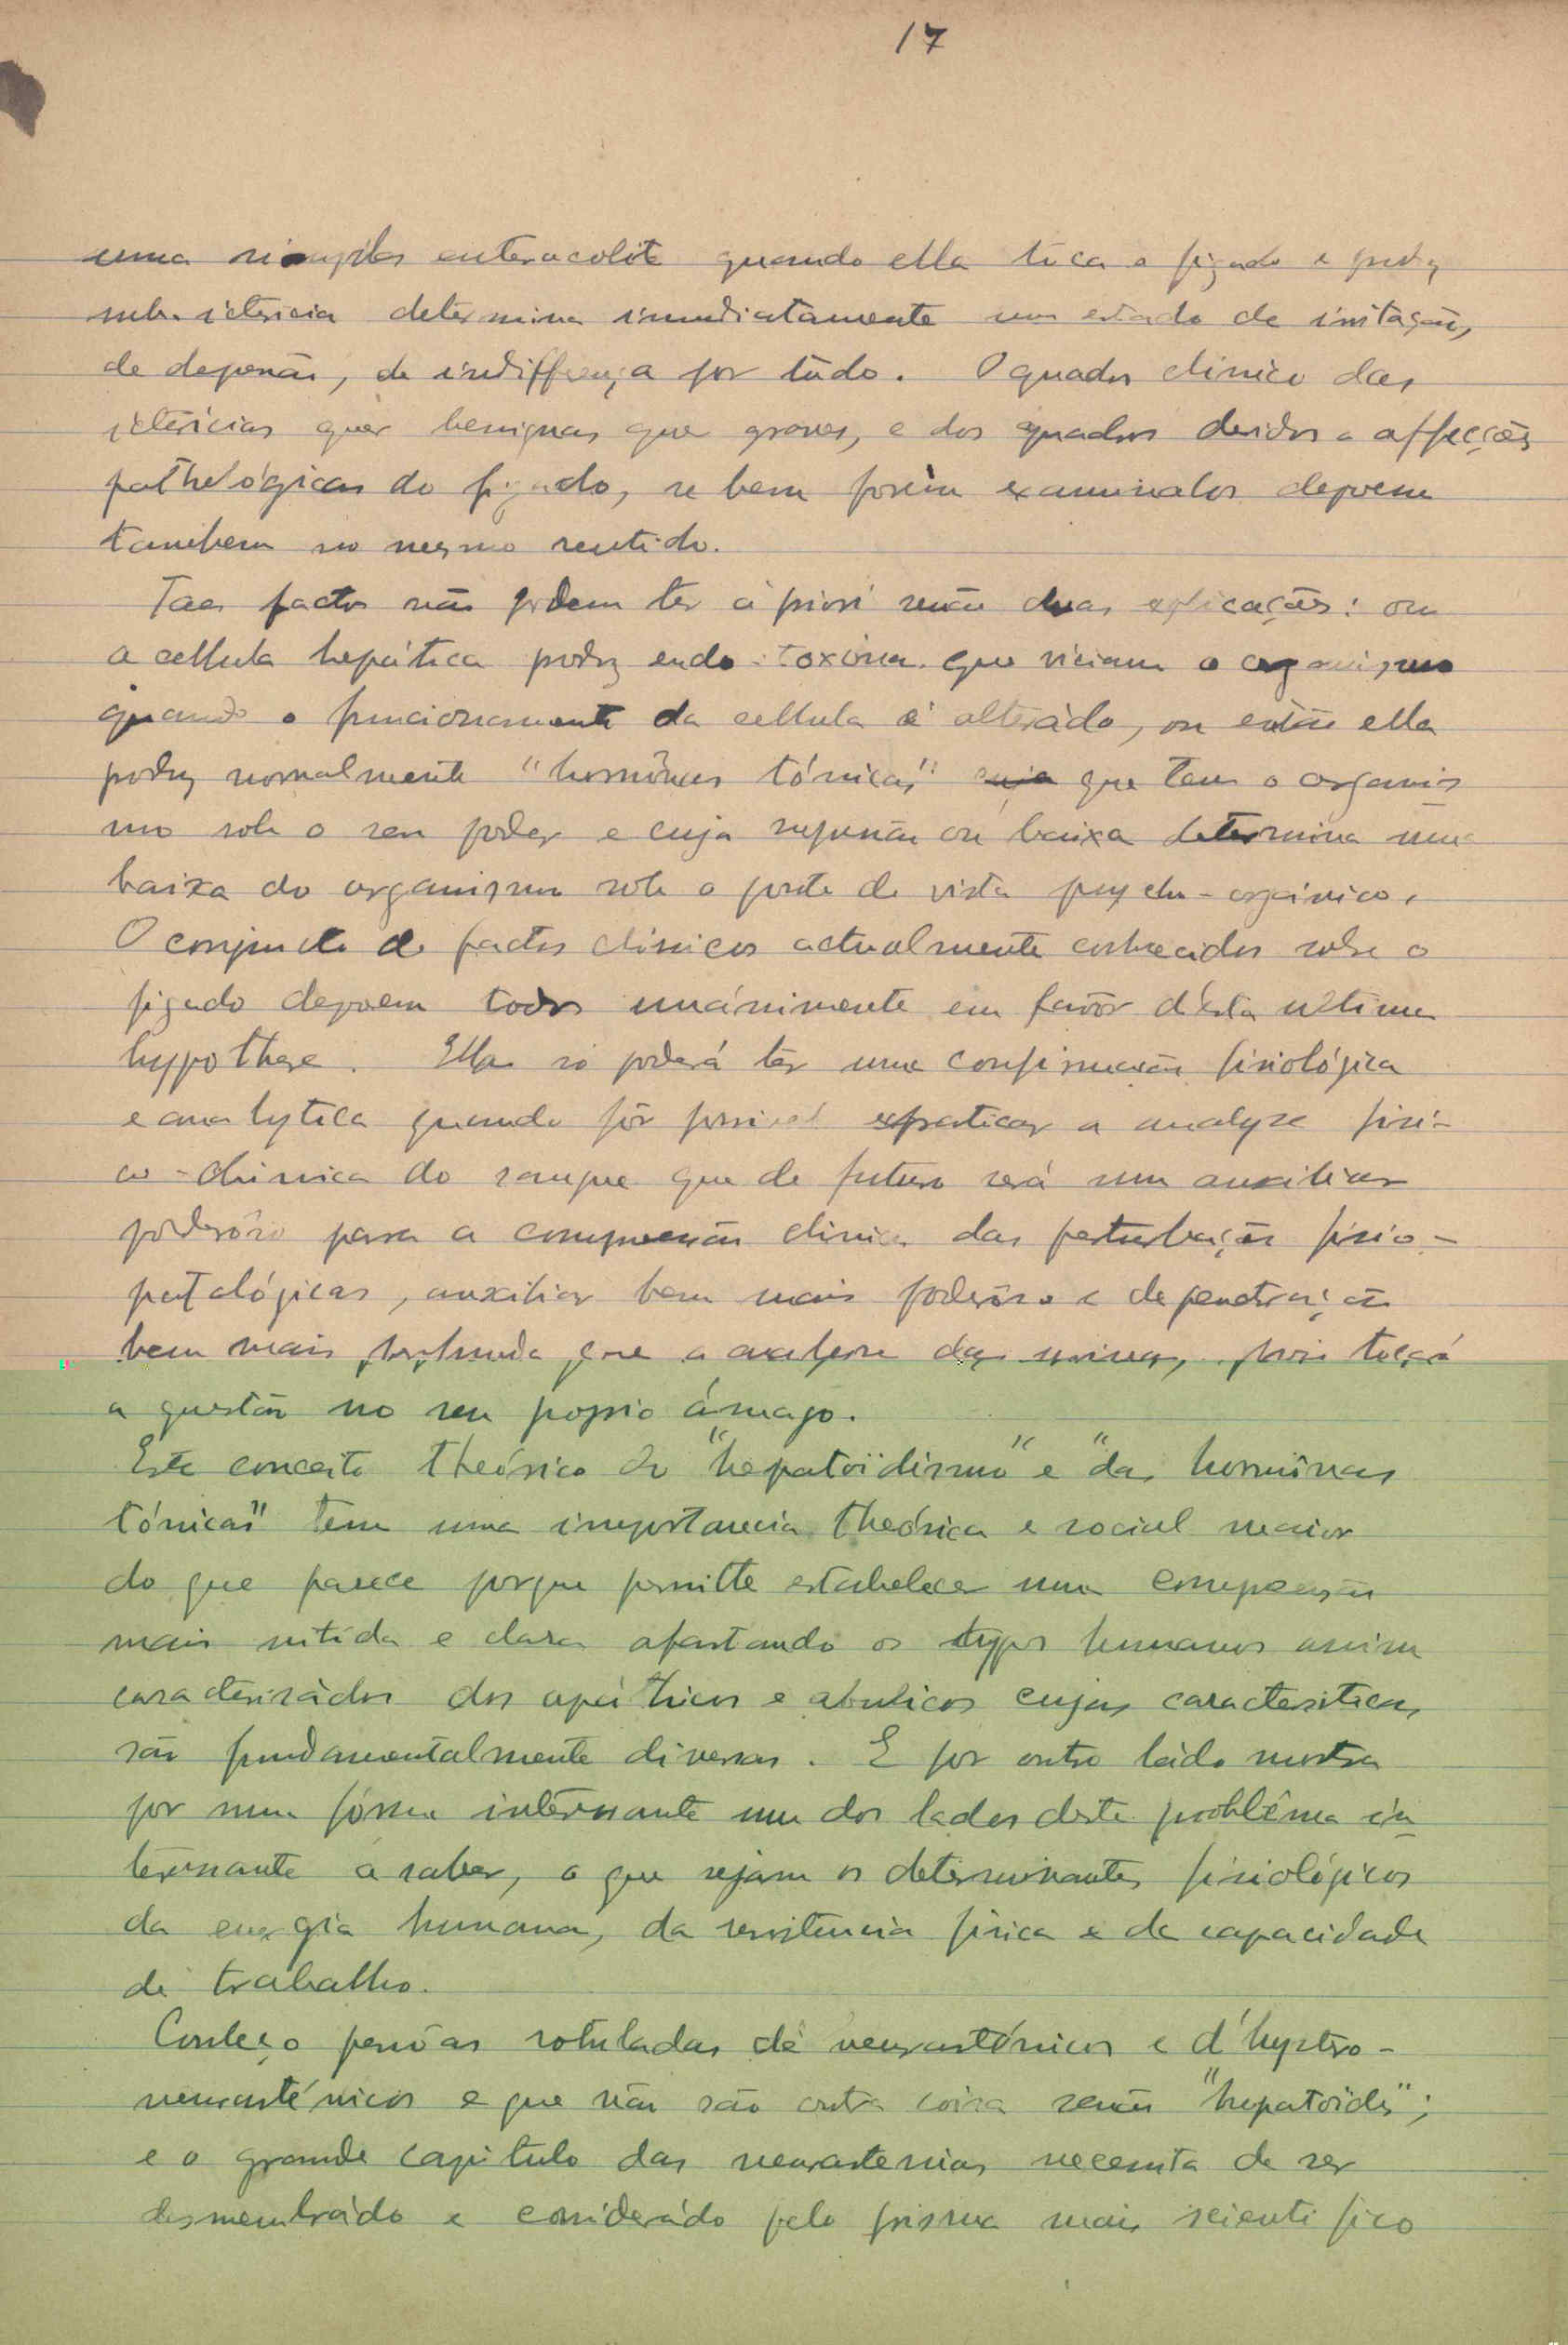 17
uma simples enterocolite quando ella tóca o figado e produz
sub-ictericia determina immediatamente um estado de irritação,
de depressão, de indifferença por tudo. O quadro clinico das
ictericias quer benignas quer graves, e dos quadros devidos a affecções
pathológicas do figado, se bem forem examinados depoem
tambem no mesmo sentido.
Taes factos não podem ter à priori senão duas explicações: ou
a cellula hepática produz endo-toxinas que viciam o organismo
quando o funcionamento da cellula é alterádo, ou então ella
produz normalmente "hormônas tónicas" que tem o organis
mo sob o seu poder e cuja supressão ou baixa determina uma
baixa do organismo sob o ponto de vista psycho-orgánico.
O conjuncto de factos clinicos actualmente conhecidos sobre o
figado depoem todos unánimente em favôr d'ésta ultima
hypothese. Ella só poderá têr uma confirmação fisiológica
e analytica quando fôr possivel praticar a analyse fisi-
co-chimica do sangue que de futuro será um auxiliar
poderôso para a compreensão clinica das perturbações fisio-
patológicas, auxiliar bem mais poderôso e de penetração
bem mais profunda que a analyse das urinas, pois tocará
a questão no seu proprio ámago.
Este conceito theórico do "hepatoïdismo" e "das hormônas
tónicas" tem uma importancia theórica e social maior
do que parece porque permitte estabelecer uma compreensão
mais nitida e clara afastando os typos humanos assim
caracterisádos dos apáthicos e abulicos cujas caracteristicas
são fundamentalmente diversas. E por outro ládo mostra
por uma fórma intéressante um dos lados deste problêma in
teressante a saber, o que sejam os determinantes fisiológicos
da energia humana, da resistencia fisica e da capacidade
de trabalho.
Conheço pessôas rotuladas de neurasténicos e d'hystero-
neurasténicos e que não são outra coisa senão "hepatoïdes";
e o grande capitulo das neurastenias necessita de ser
desmembrádo e considerádo pelo prisma mais scientifico